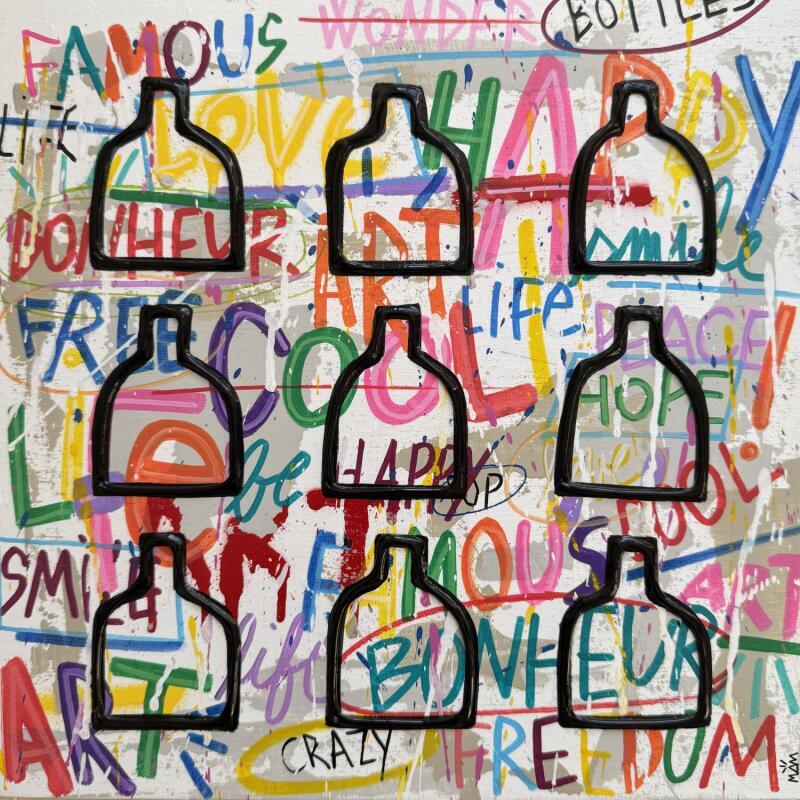 WONDER BOTTLES
FAMOUS
LIFE LOVE HAPPY
BONHEUR ART smile
FREE COOL LIFE PEACE
HOPE
LIFE be HAPPY
POP COOL
ART
SMILE FAMOUS ART
life BONHEUR
ART
CRAZY FREEDOM
MAM